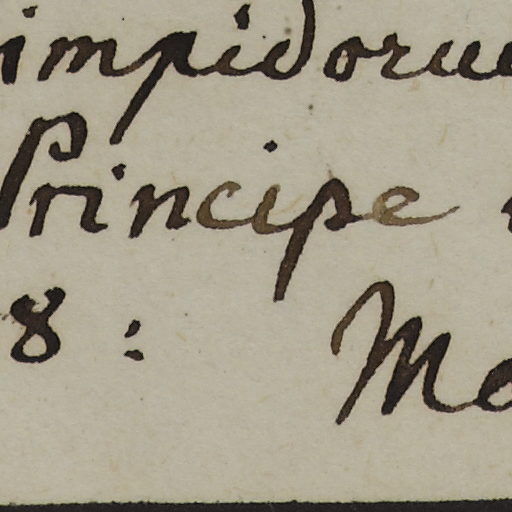 impidoru
Principe
8: Mo